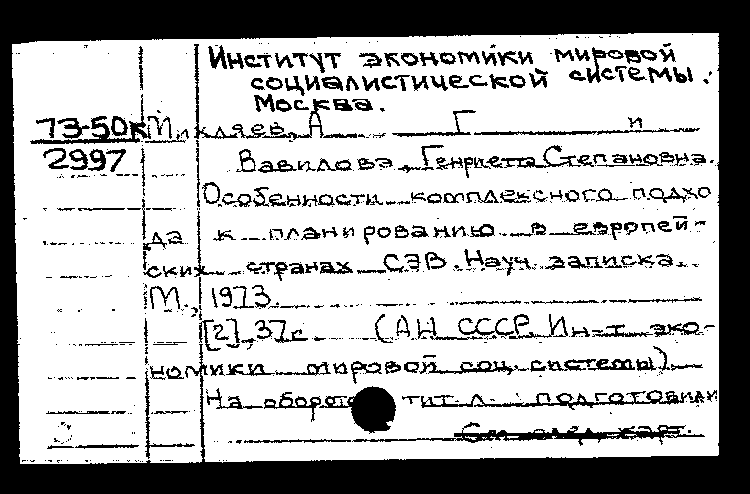 Институт экономики мировой
социалистической системы.
Москва.
73-50к Михляев, А Г и
2997 Вавилова, Генриетта Степановна.
Особенности комплексного подхо
да к планированию в европей-
ских странах СЭВ. Науч. записка.
М., 1973.
[2], 37с. (АН СССР. Ин-т эко-
номики мировой соц. системы).
На обороте тит. л.: подготовили
См. след. карт.